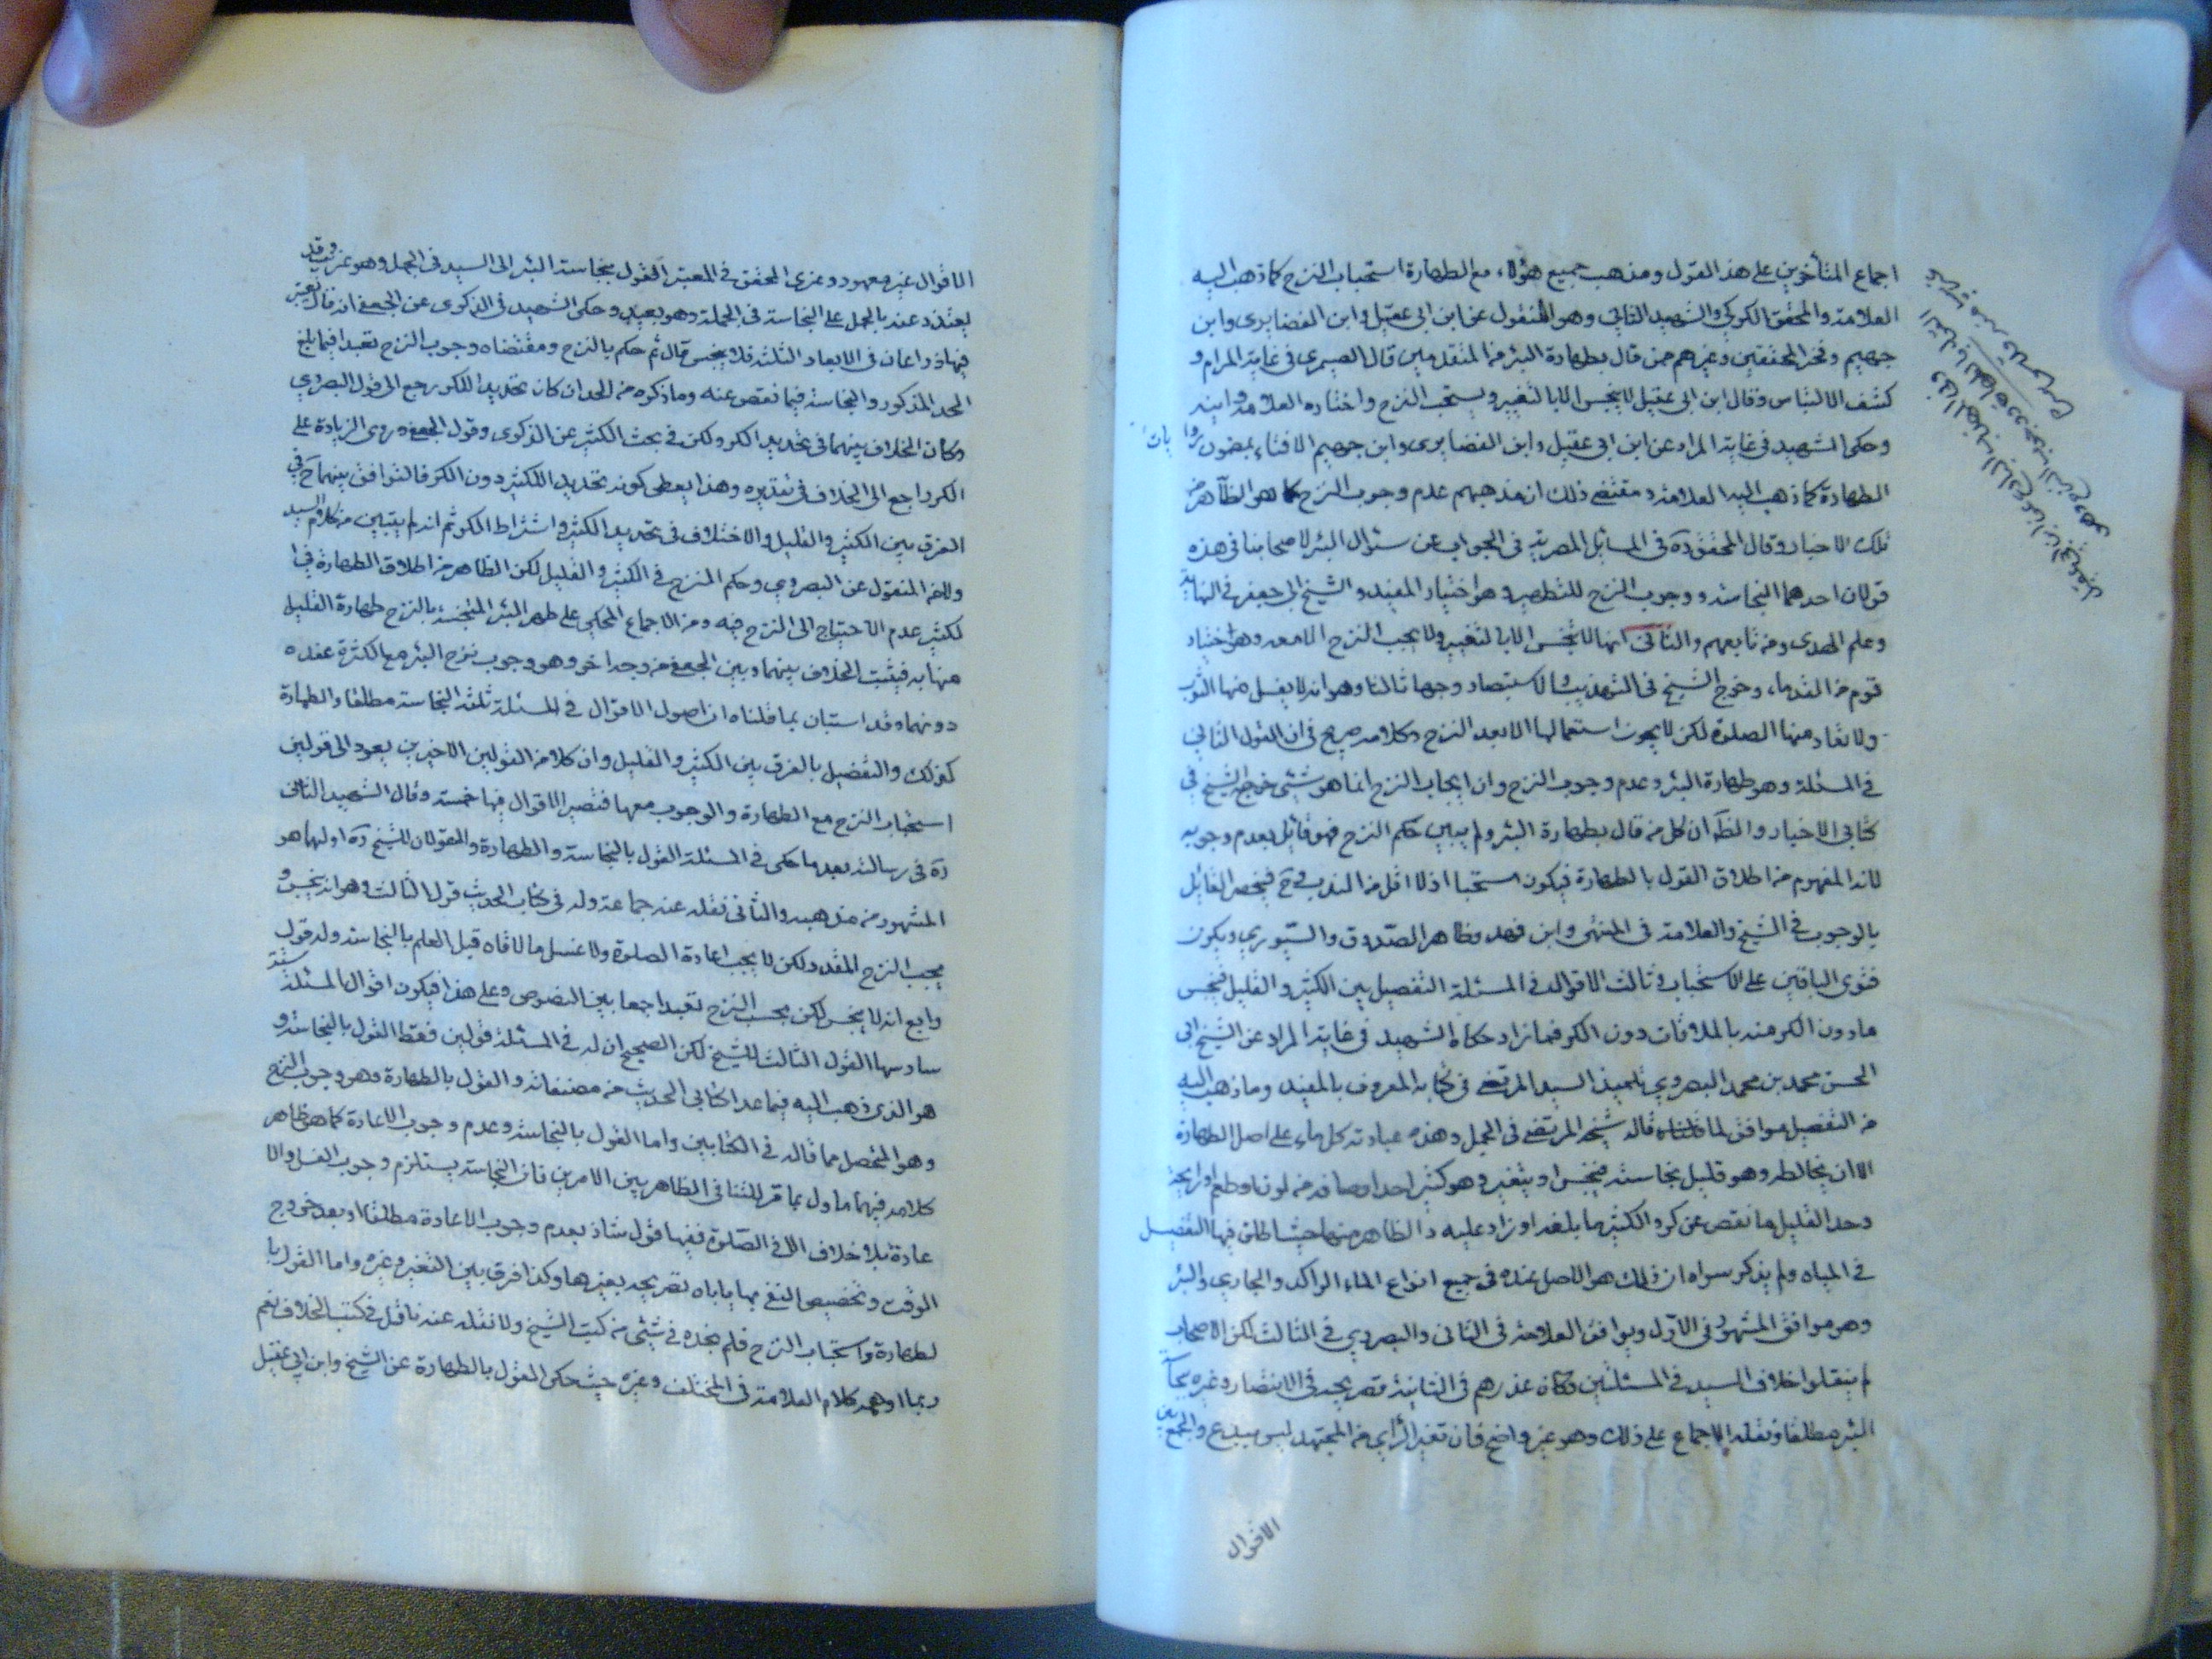 اجماع المتأخرين على هذا القول ومذهب جميع هؤلاء مع الطهارة استحباب النزح كما ذهب اليه
العلامة والمحقق الكركي والشهيد الثاني وهو المنقول عن ابن ابى عقيل وابن الغضايرى وابن
جهيم وفخر المحققين وغيرهم ممن قال بطهارة البئر من المتقدمين قال الصيمرى في غاية المرام و
كشف الالتباس وقال ابن ابى عقيل لا ينجس الا بالتغيير ويستحب النزح واختاره العلامة وابنه
وحكى الشهيد في غاية المراد عن ابن ابى عقيل وابن الغضايرى وابن جهيم الافتاء بمضمون روا
يات
الطهارة كما ذهب اليه العلامة ومقتضى ذلك ان مذهبهم عدم وجوب النزح كما هو الظاهر من
تلك الاخبار وقال المحقق ره في المسائل المصرية في الجواب عن سئوال البئر لاصحابنا في هذه
قولان احدهما النجاسة ووجوب النزح للتطهير وهو اختيار المفيد والشيخ ابى جعفر في النهاية
وعلم الهدى ومن تابعهم والثانى انها لا تنجس الا بالتغيير ولا يجب النزح الا معه وهو اختيار
قوم من القدماء وخرج الشيخ في التهذيب والاستبصار وجها ثالثا وهو انه لا يغسل منها الثوب
ولا تعاد منها الصلوة لكن لا يجوز استعمالها الا بعد النزح وكلامه صريح في ان القول الثاني
في المسئلة وهو طهارة البئر وعدم وجوب النزح وان ايجاب النزح انما هو شئى خرجه الشيخ في
كتابي الاخبار والظ ان كل من قال بطهارة البئر ولم يبين حكم النزح فهو قائل بعدم وجوبه
لانه المفهوم من اطلاق القول بالطهارة فيكون مستحبا اذ لا اقل من الندب في ح فينحصر القائل
بالوجوب في الشيخ والعلامة في المنتهى وابن فهد وظاهر الصدوق والسيوري ويكون
فتوى الباقين على الاستحباب وثالث الاقوال في المسئلة التفصيل بين الكثير والقليل فينجس
ما دون الكر منه بالملاقات دون الكر فما زاد حكاه الشهيد في غاية المراد عن الشيخ ابى
الحسن محمد بن محمد البصروي تلميذ السيد المرتضى في كتابه المعروف بالمفيد وما ذهب اليه
من التفصيل موافق لما قاله شيخه المرتضى في الجمل وهذه عبارته كل ماء على اصل الطهارة
الا ان يخالطه وهو قليل نجاسة فينجس او يتغير وهو كثير احد اوصافه من لون او طعم او رايحة
وحد القليل ما نقص عن كر والكثير ما بلغه او زاد عليه والظاهر منها حيث اطلق فيها التفصيل
في المياه ولم يذكر سواه ان ذلك هو الاصل عنده في جميع انواع الماء الراكد والجاري والبئر
وهو موافق المشهور في الاول ويوافق العلامة في الثانى والبصروي في الثالث لكن الاصحاب
لم ينقلوا خلاف السيد في المسئلتين وكان عذرهم في الثانية تصريحه في الانتصار وغيره بنجاسة
البئر مطلقا ونقله الاجماع على ذلك وهو غير واضح فان تغير الرأى من المجتهد ليس ببدع والجمع بين
الاقوال
الاقوال غير معهود وعزى المحقق في المعتبر القول بنجاسة البئر الى السيد في الجمل وهو غريب وقد
يعتذر عنه بالحمل على النجاسة في الجملة وهو بعيد وحكى الشهيد في الذكرى عن الجعفى انه قال يعتبر
فيها ذراعان في الابعاد الثلثة فلا ينجس قال ثم حكم بالنزح ومقتضاه وجوب النزح تعبدا فيما بلغ
الحد المذكور والنجاسة فيما نقص عنه وما ذكره من الحد ان كان تحديدا للكر رجع الى قول البصروي
وكان الخلاف بينهما في تحديد الكر ولكن في بحث الكثير عن الذكرى وقول الجعفى وروى الزيادة على
الكر راجع الى الخلاف في تقديره وهذا يعطى كونه تحديدا للكثير دون الكر فالتوافق بينهما ح في
الفرق بين الكثير والقليل والاختلاف في تحديد الكثير واشتراط الكر ثم انه لم يتبين من كلام السيد
ولا من المنقول عن البصروي حكم النزح في الكثير والقليل لكن الظاهر من اطلاق الطهارة في ا
لكثير عدم الاحتياج الى النزح فيه ومن الاجماع المحكي على طهر البئر المتنجسة بالنزح طهارة القليل
منها به فيثبت الخلاف بينهما وبين الجعفى من وجه اخر وهو وجوب نزح البئر مع الكثرة عنده
دونهما وقد استبان بما قلناه ان اصول الاقوال في المسئلة ثلثة النجاسة مطلقا والطهارة
كذلك والتفصيل بالفرق بين الكثير والقليل وان كلا من القولين الاخيرين يعود الى قولين
استحباب النزح مع الطهارة والوجوب معها فتصير الاقوال فيها خمسة وقال الشهيد الثاني
ره في رسالته بعد ما حكى في المسئلة القول بالنجاسة والطهارة والقولان للشيخ ره اولهما هو
المشهور من مذهبه والثانى نقله عنه جماعة وله في كتاب الحديث قول ثالث وهو انه ينجس و
يجب النزح المقدر ولكن لا يجب اعادة الصلوة ولا غسل ما لاقاه قبل العلم بالنجاسة وله قول
رابع انه لا ينجس لكن يجب النزح تعبدا جمعا بين النصوص وعلى هذا فيكون اقوال المسئلة ستة
سادسها القول الثالث للشيخ لكن الصحيح ان له في المسئلة قولين فقط القول بالنجاسة و
هو الذى ذهب اليه فيما عدا كتابى الحديث من مصنفاته والقول بالطهارة وهو وجوب النزح
وهو المتحصل مما قاله في الكتابين واما القول بالنجاسة وعدم وجوب الاعادة كما هو ظاهر
كلامه فيهما ماول بما مر للتنافى الظاهر بين الامرين فان النجاسة يستلزم وجوب الغسل والا
عادة بلا خلاف الا في الصلوة ففيها قول شاذ بعدم وجوب الاعادة مطلقا او بعد خروج
الوقت وتخصيص النفى بها ياباه تصريحه بغيرها وكذا فرق بين التغير وغيره واما القول با
لطهارة واستحباب النزح فلم نجده في شئى من كتب الشيخ ولا نقله عنه ناقل في كتب الخلاف نعم
ربما اوهمه كلام العلامة في المختلف وغيره حيث حكى القول بالطهارة عن الشيخ وابن ابي عقيل